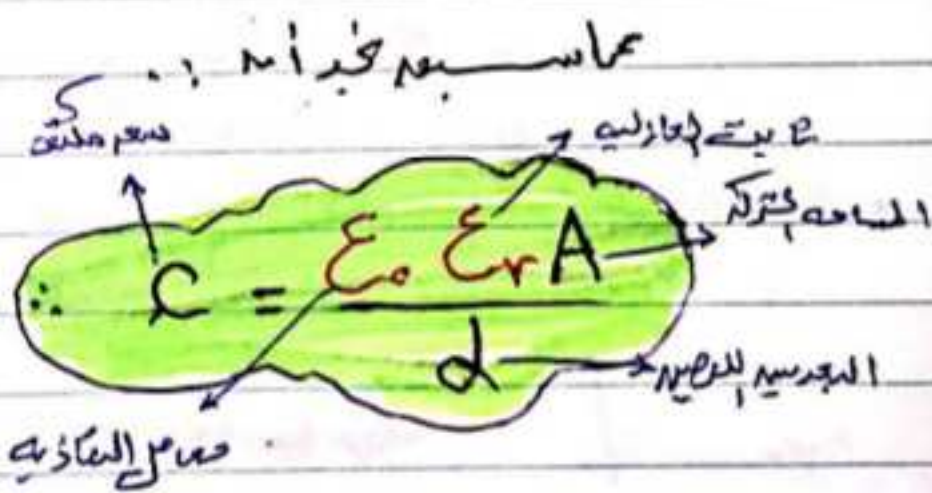 مما سبق نجد أن :.
سعه مكثف
ثابت العازليه
المساحه المشتركه
∴ C = ε₀ εᵣ A / d
البعد بين اللوحين
معامل النفاذيه